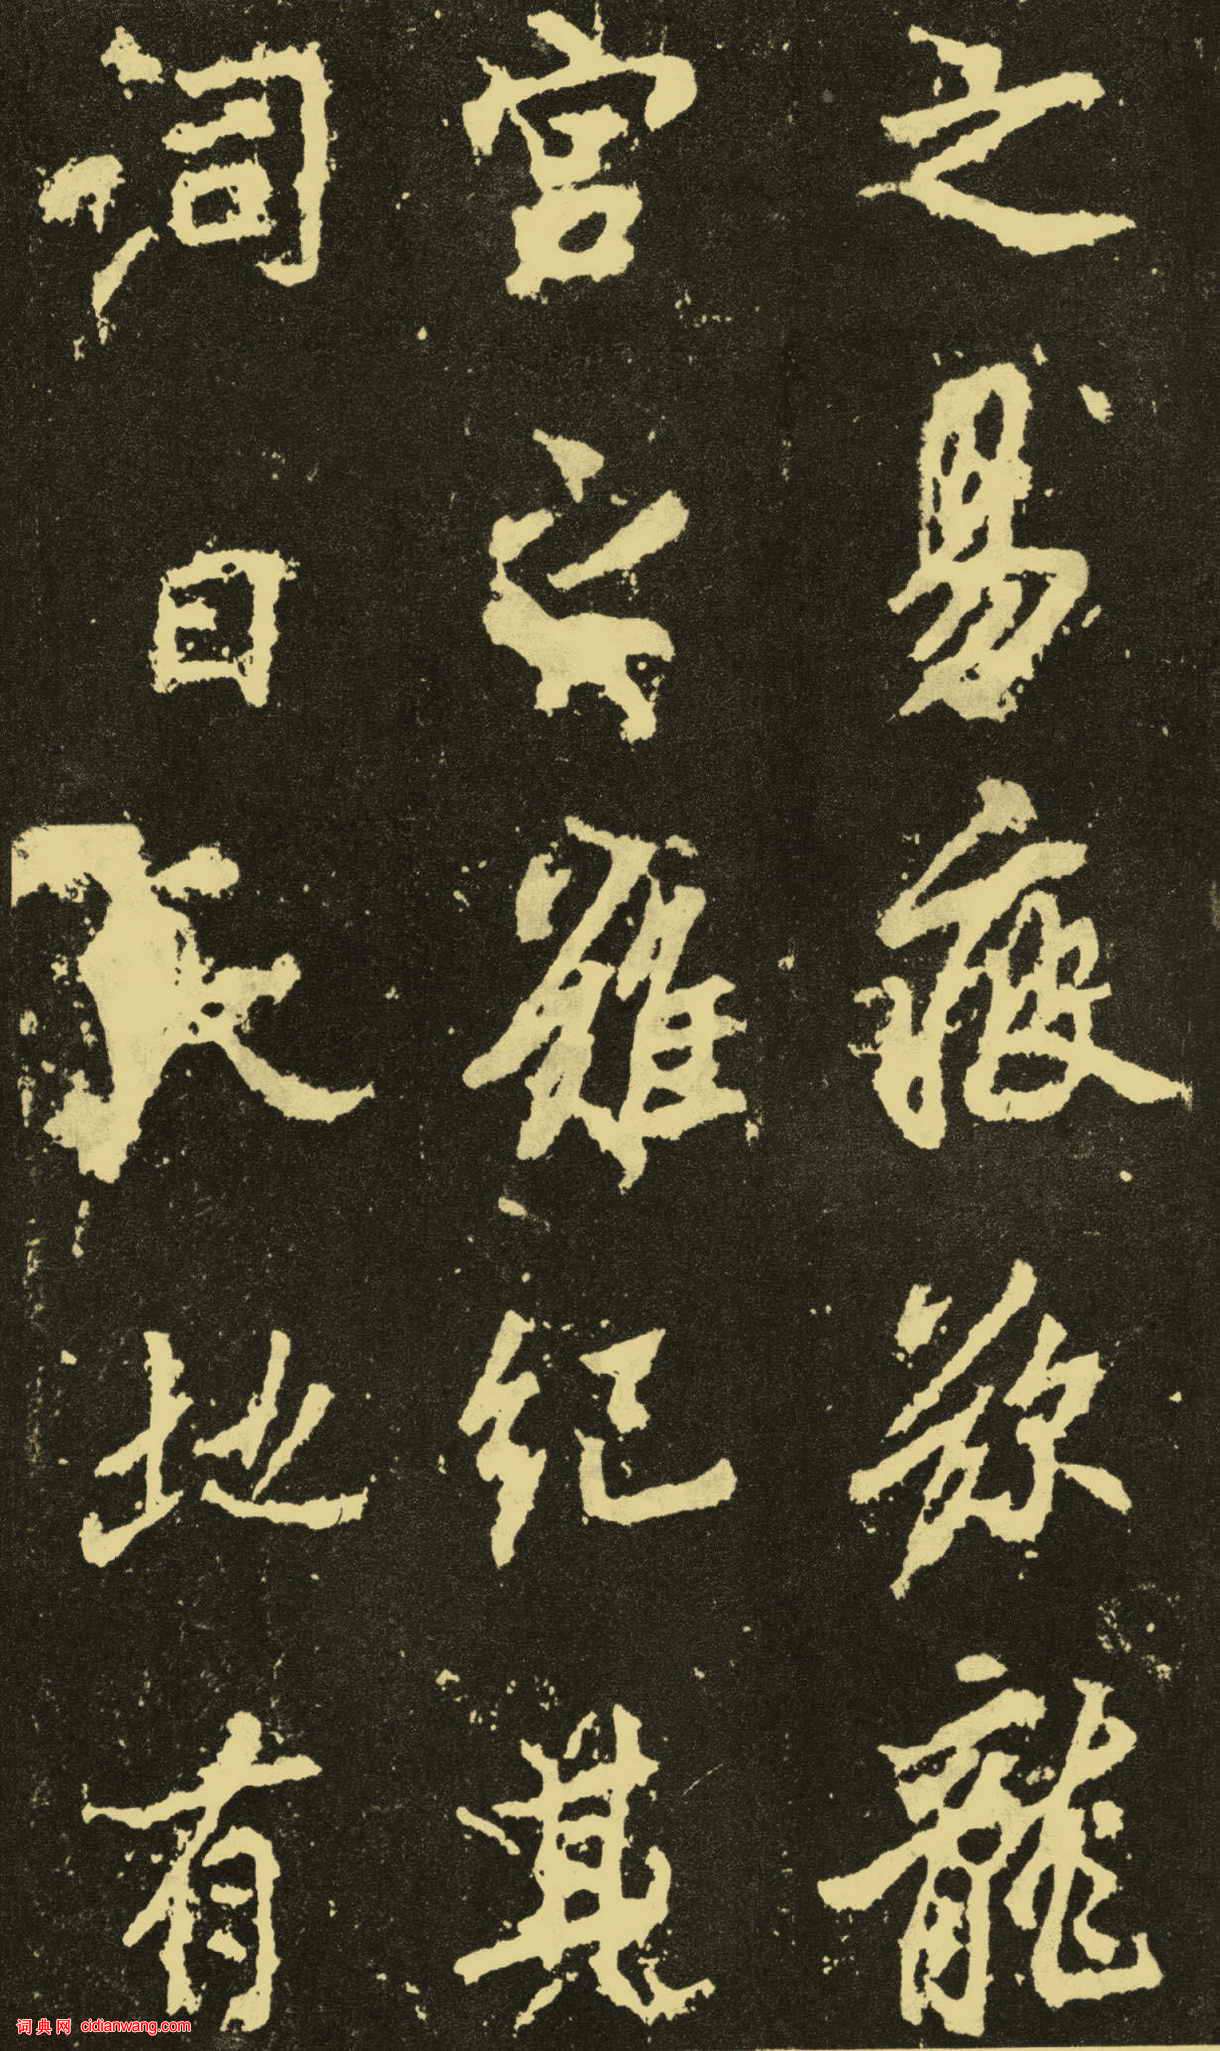 之易龍
宮之難紀其
詞曰天地有
词典网 cidianwang.com